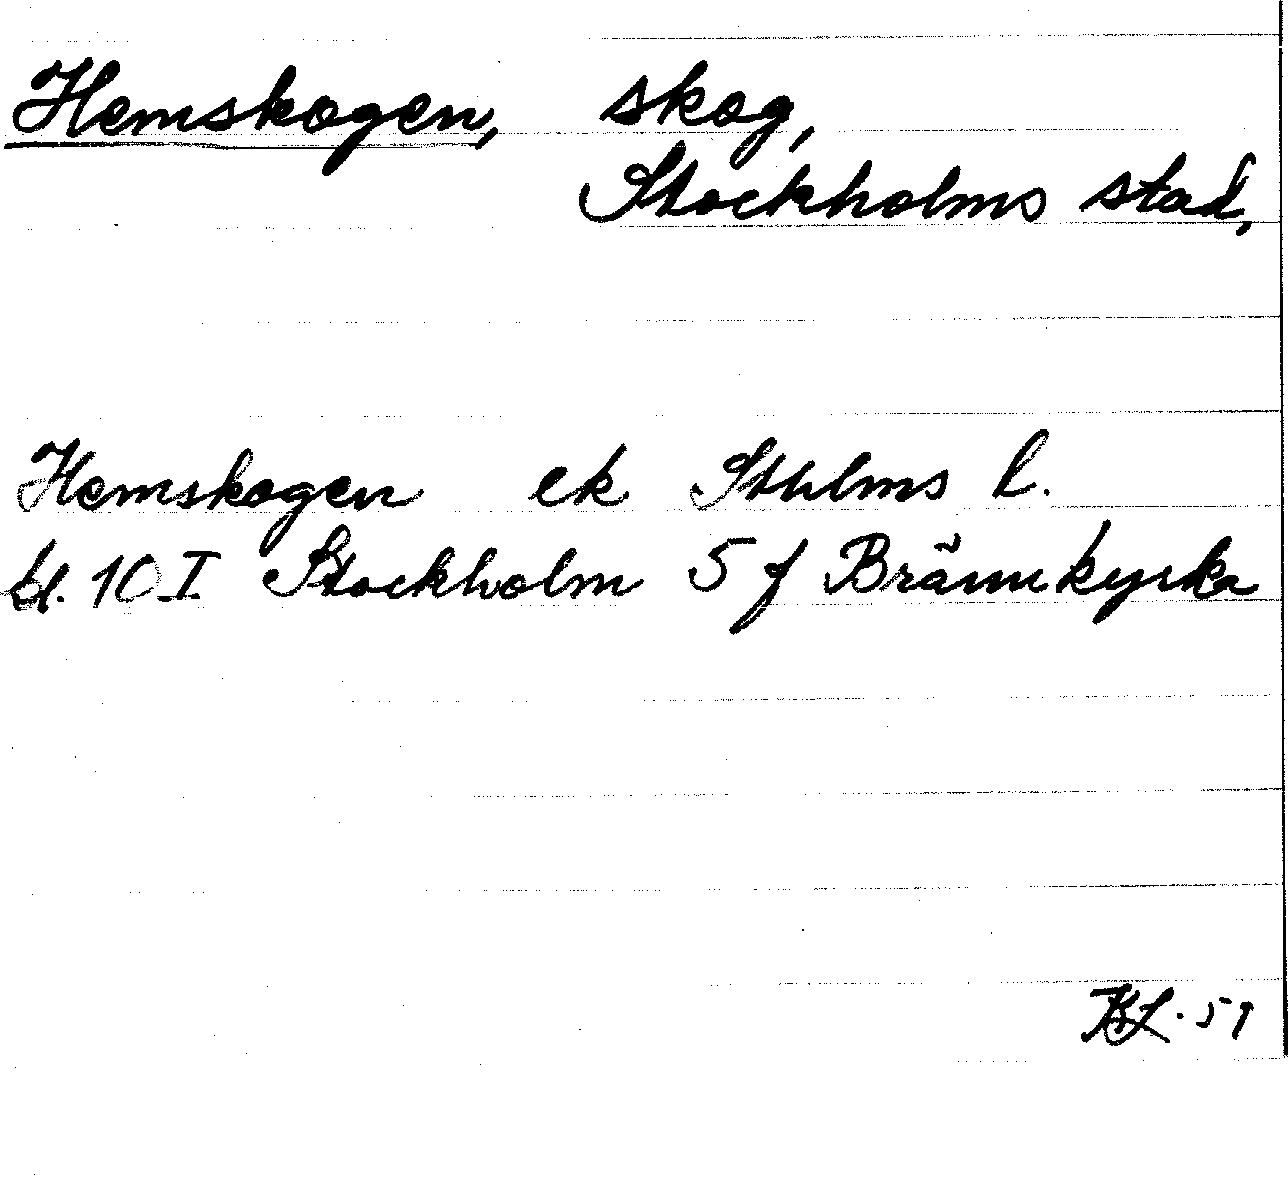 Hemskogen, skog,
Stockholms stad,
Hemskogen ek Sthlms l.
bl. 10 I Stockholm 5 f Brännkyrka
KL. 51